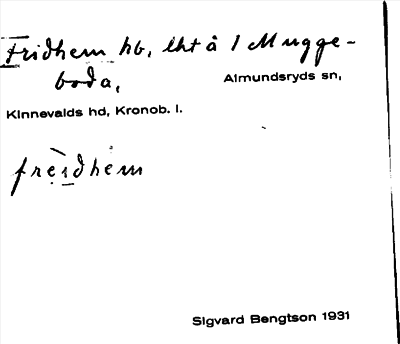 Fridhem hb, lht å 1 Mugge-
boda, Almundsryds sn,
Kinnevalds hd, Kronob. l.
frèi̱dhėm
Sigvard Bengtson 1931